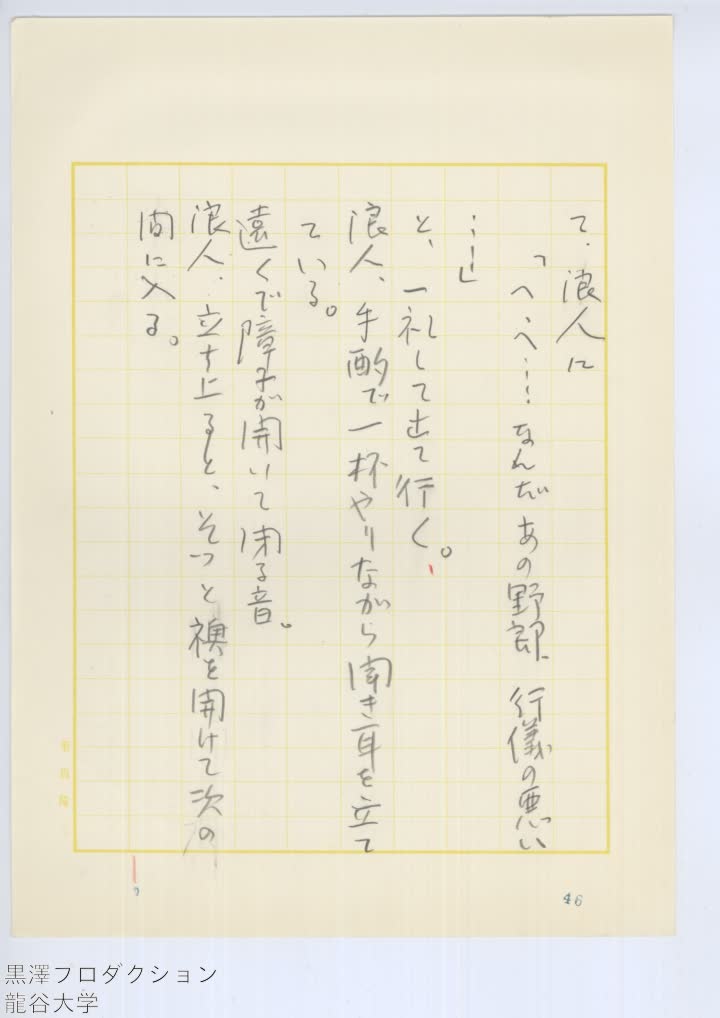 て、浪人に
「へ、へ……なんだあの野郎、行儀の悪い
……」
と、一礼して出て行く。
浪人、手酌で一杯やりながら聞き耳を立て
ている。
遠くで障子が開いて閉る音。
浪人、立ち上ると、そっと襖を開けて次の
間に入る。
46
黒澤プロダクション
龍谷大学